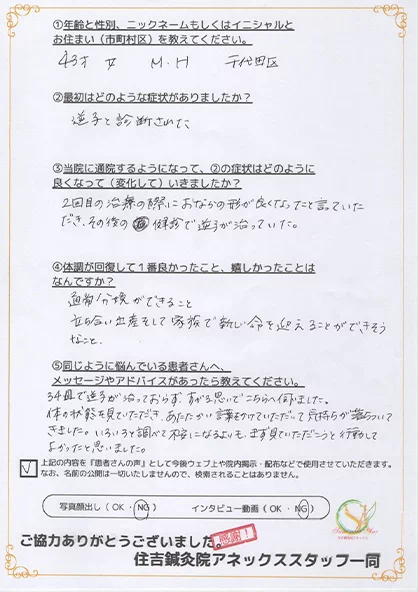 ①年齢と性別、ニックネームもしくはイニシャルと
お住まい（市町村区）を教えてください。
43才 女 M.H 千代田区
②最初はどのような症状がありましたか？
逆子と診断された
③当院に通院するようになって、②の症状はどのように
良くなって（変化して）いきましたか？
2回目の治療の際におなかの形が良くなったと言っていた
だき、その後の 健診で逆子が治っていた。
④体調が回復して１番良かったこと、嬉しかったことは
なんですか？
通常分娩ができること
立ち合い出産そして家族で新しい命を迎えることができそう
なこと。
⑤同じように悩んでいる患者さんへ、
メッセージやアドバイスがあったら教えてください。
34週で逆子が治っておらず、すがる思いでこちらへ伺いました。
体の状態を見ていただき、あたたかい言葉をかけていただいて気持ちが落ちついて
きました。いろいろと調べて不安になるよりも、まず見ていただこうと行動して
よかったと思いました。
上記の内容を『患者さんの声』として今後ウェブ上や院内掲示・配布などで使用させていただきます。
なお、名前の公開は一切いたしませんので、検索されることはありません。
写真顔出し（ OK ・ NG ） インタビュー動画（ OK ・ NG ）
ご協力ありがとうございました。
感謝！
住吉鍼灸院アネックススタッフ一同